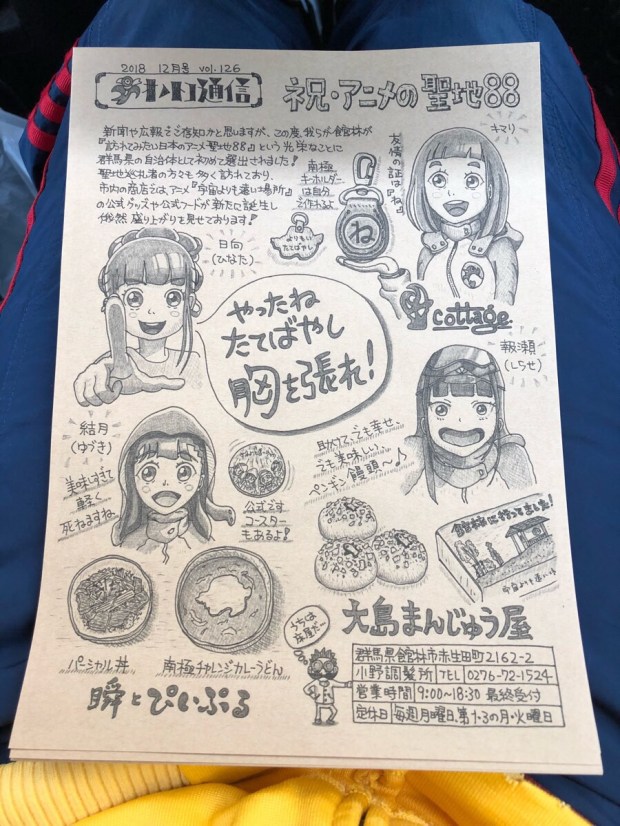 2018 12月号 vol.126
通信
祝・アニメの聖地88
新聞や広報でご存知かと思いますが、この度、我らが館林が
『訪れてみたい日本のアニメ聖地88』という光栄なことに
群馬県の自治体として初めて選出されました!
聖地巡礼者の方々も多く訪れており、
市内の商店では、アニメ『宇宙よりも遠い場所』
の公式グッズや公式フードが新たに誕生し
俄然盛り上がりを見せております!
南極
キーホルダー
は自分
で作れるよ
よりもい
たてばやし
友情の証は『ね』
ね
キマリ
cottage
日向
(ひなた)
やったね
たてばやし
胸を張れ!
報瀬
(しらせ)
結月
(ゆづき)
美味しすぎて
軽く
死ねますね
公式です
コースター
もあるよ!
助けて、でも幸せ、
でも美味しい、
ペンギン饅頭〜♪
館林に行ってきました!
宇宙よりも遠い
パーシャル丼
南極チャレンジカレーうどん
瞬とぴいぷる
大島まんじゅう屋
うちは
床屋だー
群馬県館林市赤生田町2162-2
小野調髪所 TEL 0276-72-1524
営業時間 9:00〜18:30 最終受付
定休日 毎週月曜日、第1・3の月・火曜日